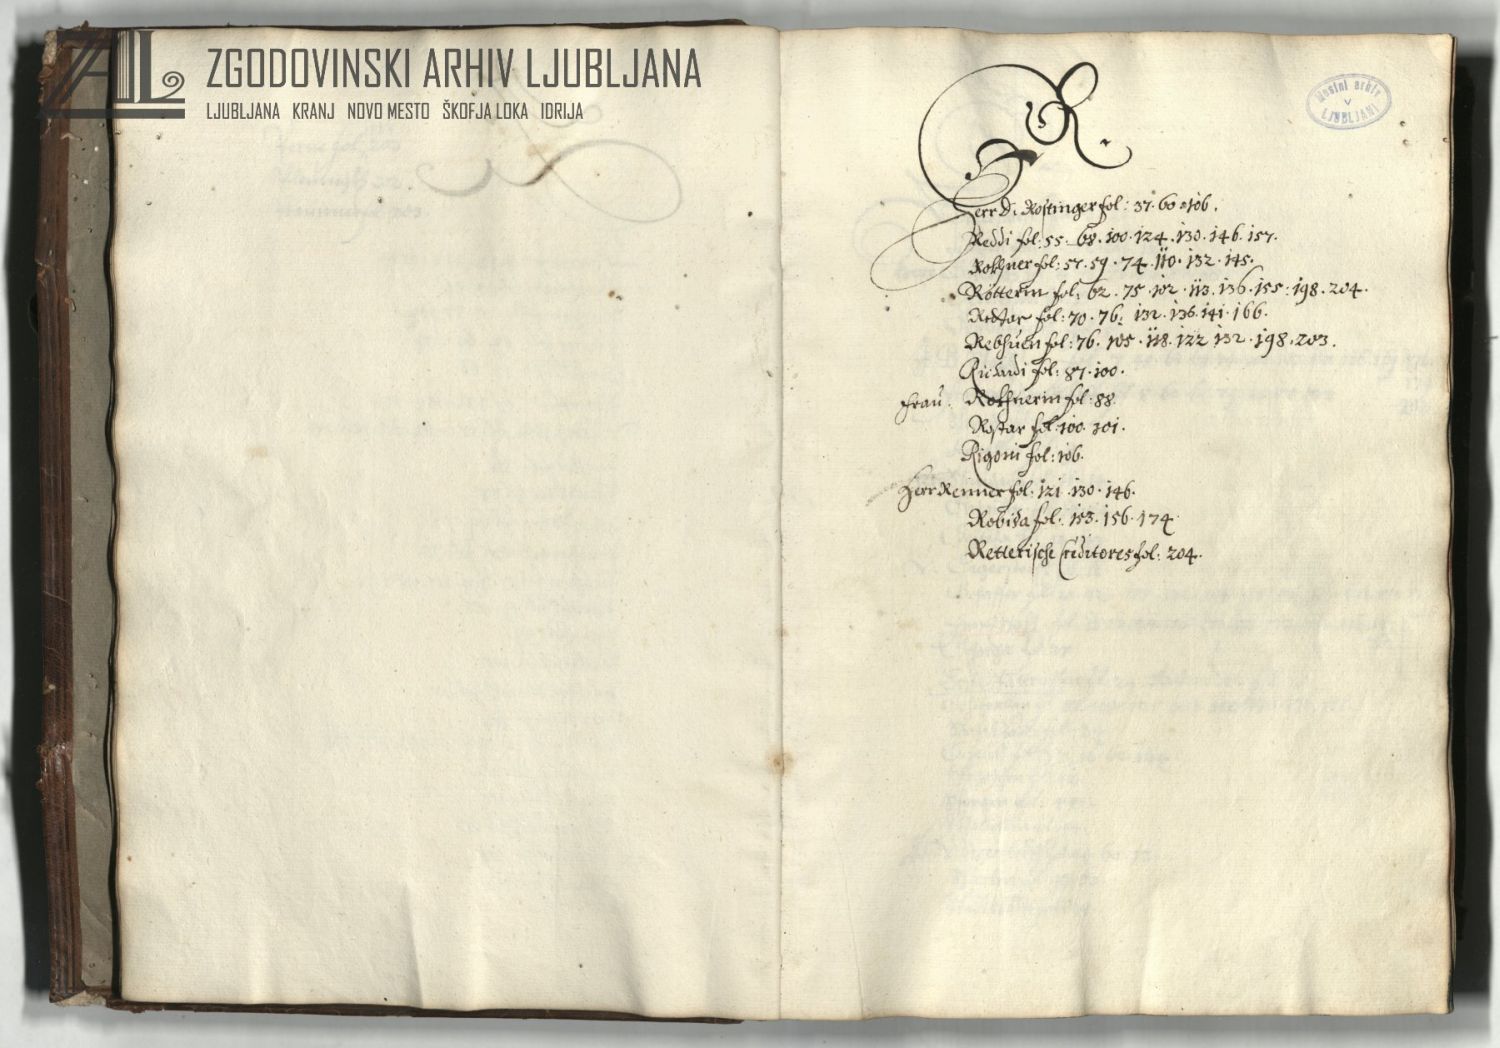 ZGODOVINSKI ARHIV LJUBLJANA
LJUBLJANA KRANJ NOVO MESTO ŠKOFJA LOKA IDRIJA
Mestni arhiv
v
LJUBLJANI
R.
Herr Di Rostinger fol: 37. 60. 106.
Reddi fol: 55. 68. 100. 124. 130. 146. 157.
fol: 57. 59. 74. 110. 132. 145.
Rötterin fol: 62. 75. 102. 113. 136. 155. 198. 204.
fol: 70. 76. 132. 136. 141. 166.
Rebhuen fol: 76. 105. 118. 122. 132. 198. 203.
Ricardi fol: 87. 100.
Frau fol: 88.
Rostar fol: 100. 101.
Rigoni fol: 106.
Herr Renner fol: 121. 130. 146.
Robida fol: 153. 156. 174.
Retterische Creditores fol: 204.